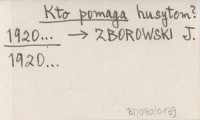 Kto pomaga husytom?
1920... → ZBOROWSKI J.
1920...
37/090/0139